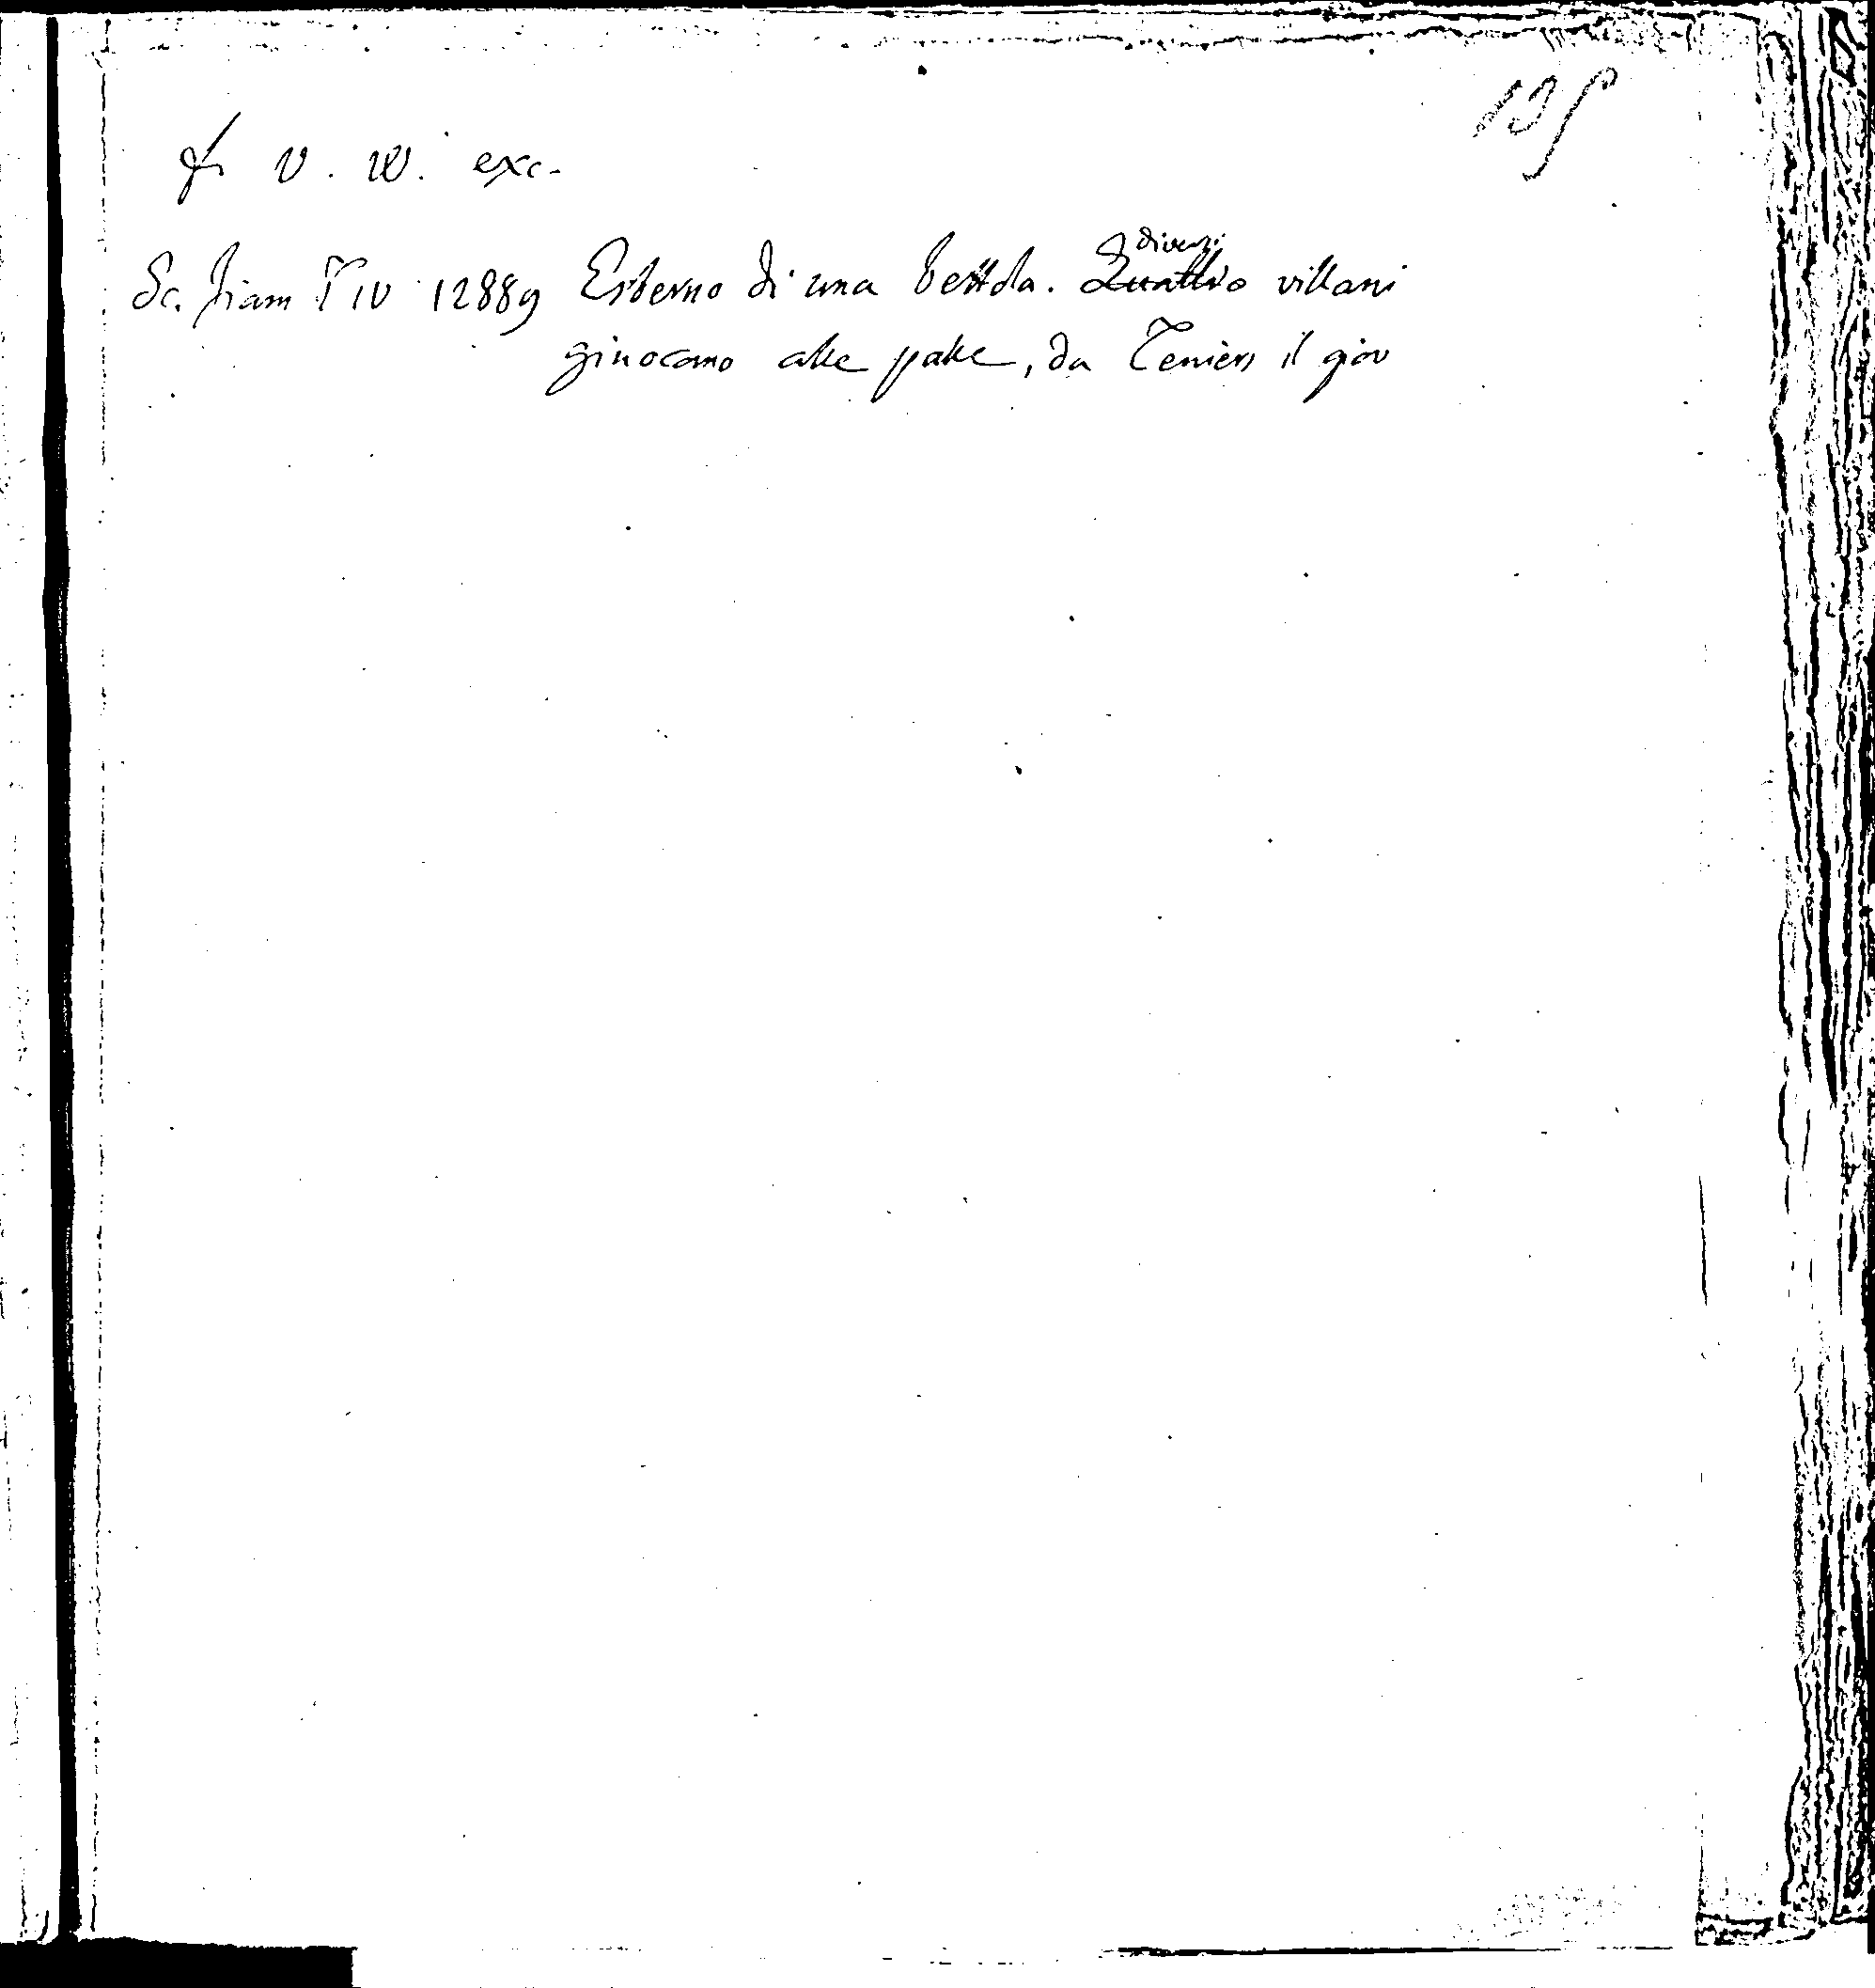 135
fr v. w. exc.
Sc. fiam T IV 12889 Esterno di una bettola. Quattro diversi villani
giuocano alle palle, da Teniers il giov